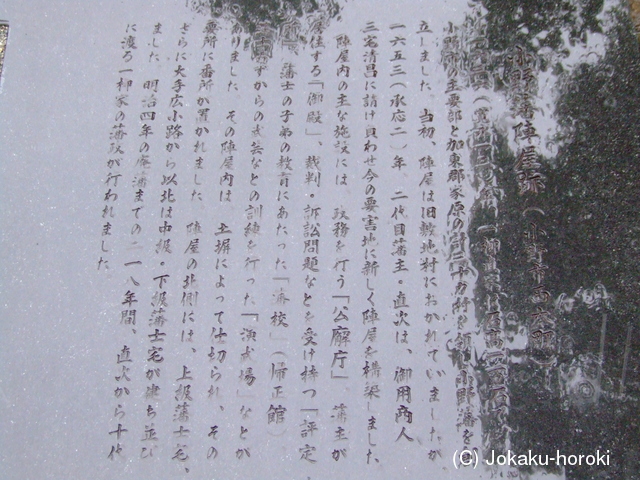 小野藩陣屋跡（小野市西本町）
小野市の主要部と加東郡家原の
立しました 当初、陣屋は旧敷地村におかれていましたが、
一六五三（承応二）年、二代目藩主・直次は、御用商人
三宅清昌に請け負わせ今の要害地に新しく陣屋を構築しました。
陣屋内の主な施設には 政務を行う「公廨庁」 藩主が
居住する「御殿」、裁判・訴訟問題などを受け持つ「評定
藩士の子弟の教育にあたった「藩校」（帰正館）
からの武芸などの訓練を行った「演武場」などが
ありました その陣屋内は 土塀によって仕切られ、その
要所に番所が置かれました 陣屋の北側には、上級藩士宅、
さらに大手広小路から以北は中級・下級藩士宅が建ち並び
ました 明治四年の廃藩までの二一八年間、直次から十代
に渡る一柳家の藩政が行われました
(C) Jokaku-horoki